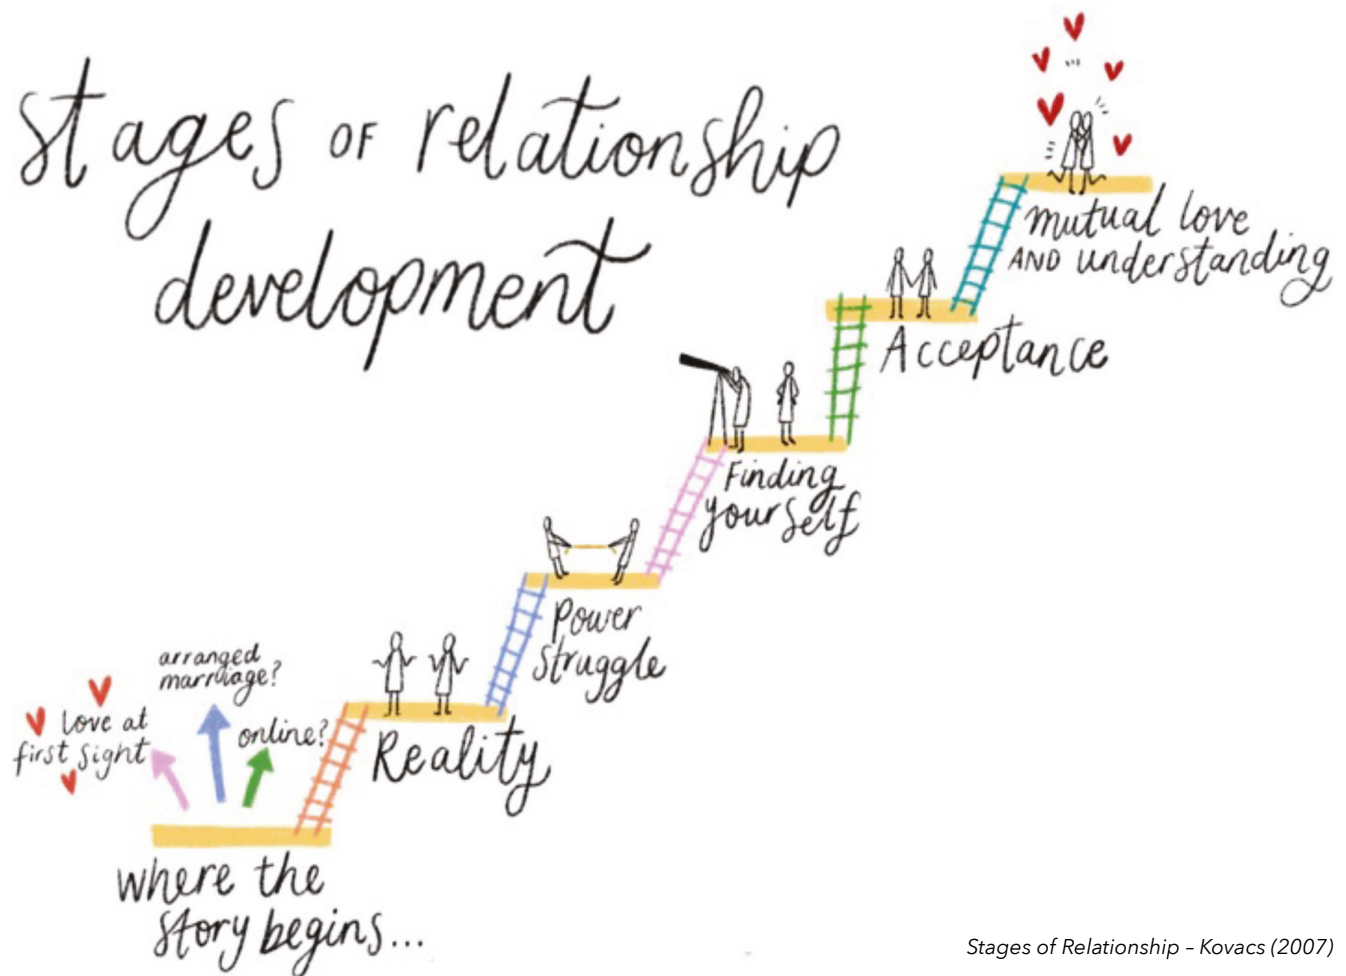 stages OF relationship
development
mutual love
AND understanding
Acceptance
Finding
yourself
Power
struggle
Reality
arranged
marriage?
love at
first sight
online?
where the
story begins...
Stages of Relationship – Kovacs (2007)